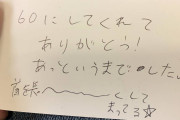 601にしてくれて
ありがとう!
あっというまでしたっ
くして
まってる☆